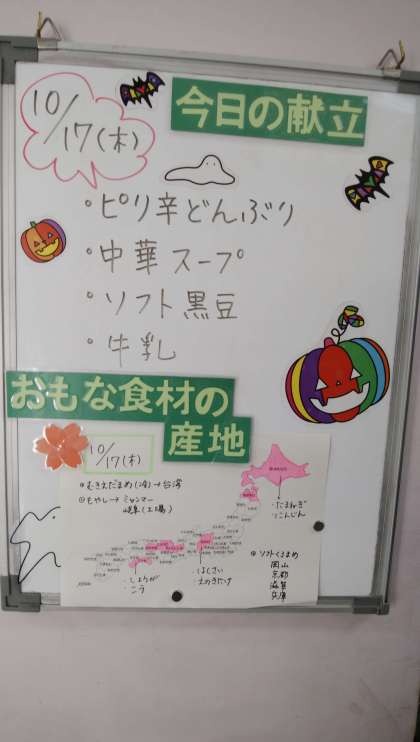 10/17(木)
今日の献立
・ピリ辛どんぶり
・中華スープ
・ソフト黒豆
・牛乳
おもな食材の
産地
10/17(木)
むきえだまめ(冷)→台湾
もやし→ミャンマー
岐阜(工場)
・たまねぎ
・にんじん
・しょうが
・はくさい
・えのきたけ
ソフトくろまめ
岡山
京都
滋賀
兵庫